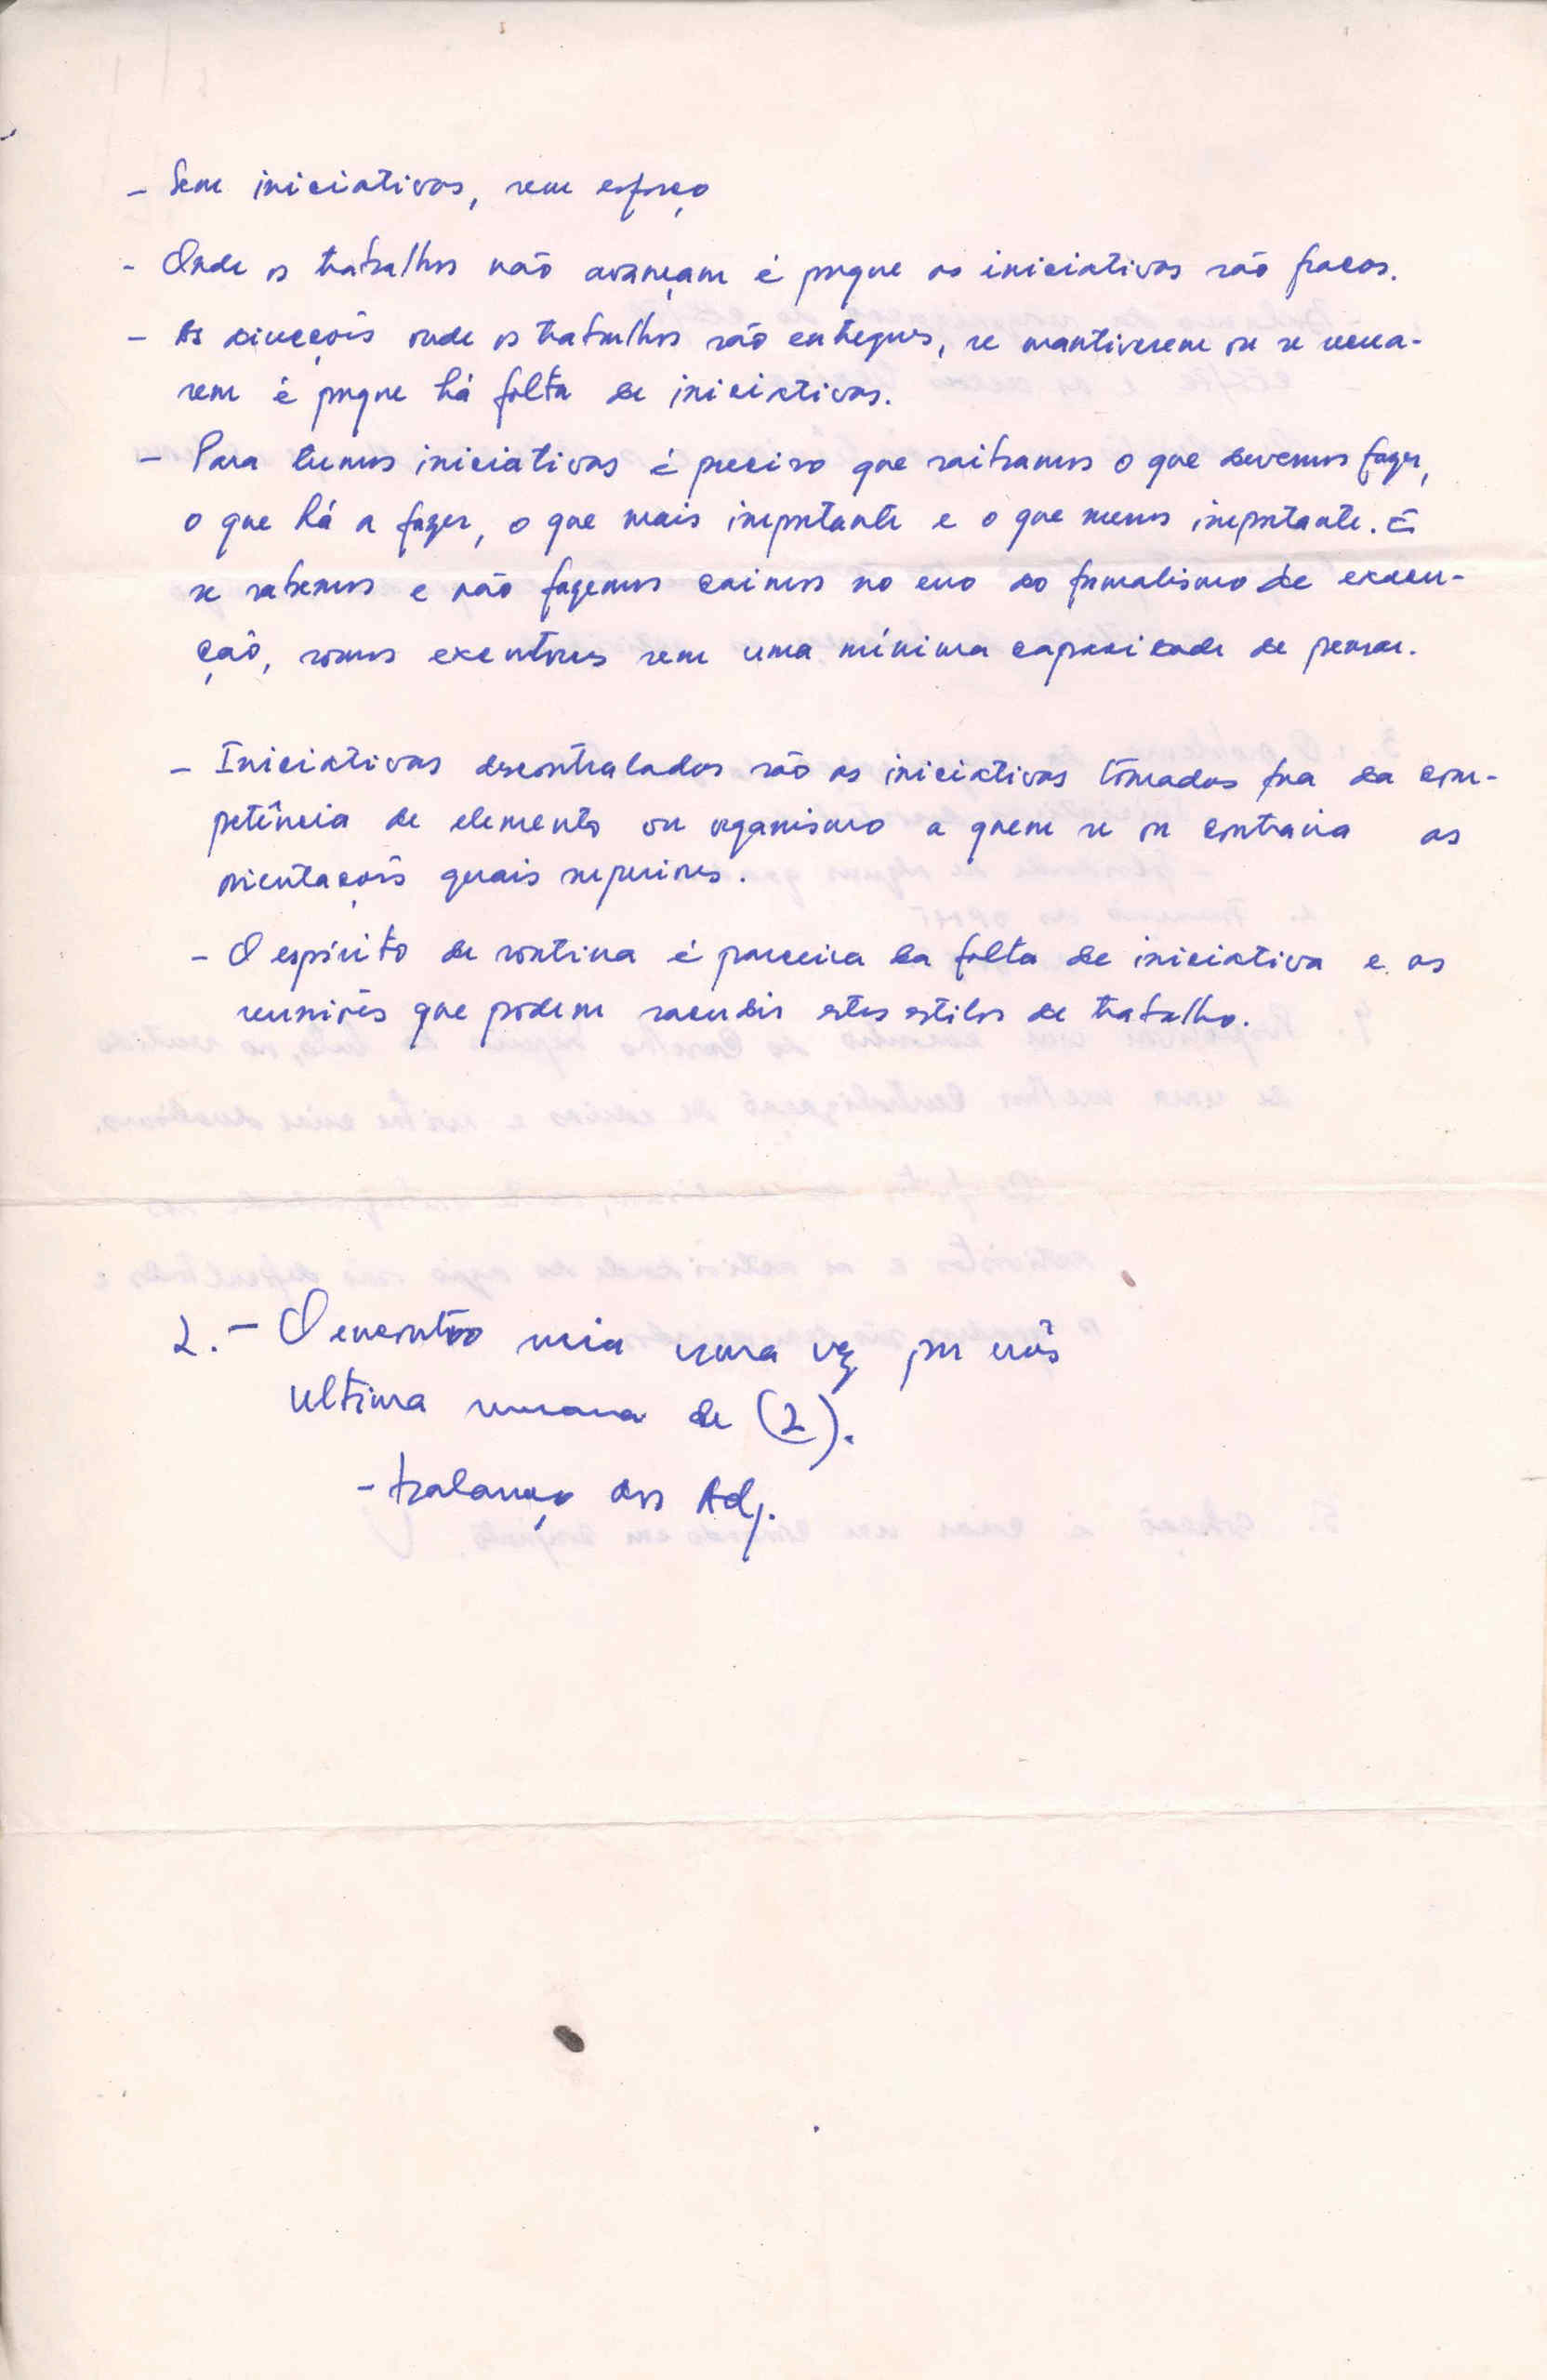 - Sem iniciativas, sem esforço
- Onde os trabalhos não avançam é porque as iniciativas são fracas.
- As direcções onde os trabalhos são entregues, se mantiverem ou se
rem é porque há falta de iniciativas.
- Para termos iniciativas é preciso que saibamos o que devemos fazer,
o que há a fazer, o que mais importante e o que menos importante. E
se sabemos e não fazemos caimos no erro do formalismo de execu-
ção, somos executores sem uma mínima capacidade de pensar.
- Iniciativas descontroladas são as iniciativas tomadas fora da com-
petência de elemento ou organismo a quem se ou contraria as
orientações gerais superiores.
- O espírito de rontina é parceira da falta de iniciativa e as
reuniões que podem sacudir estes estilos de trabalho.
2. - O encontro seria uma vez por mês
ultima semana de (2).
- balanço dos Adj.